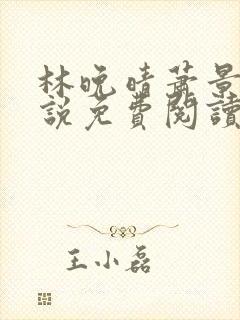 林晚晴萧景
說免費閱讀
王小磊